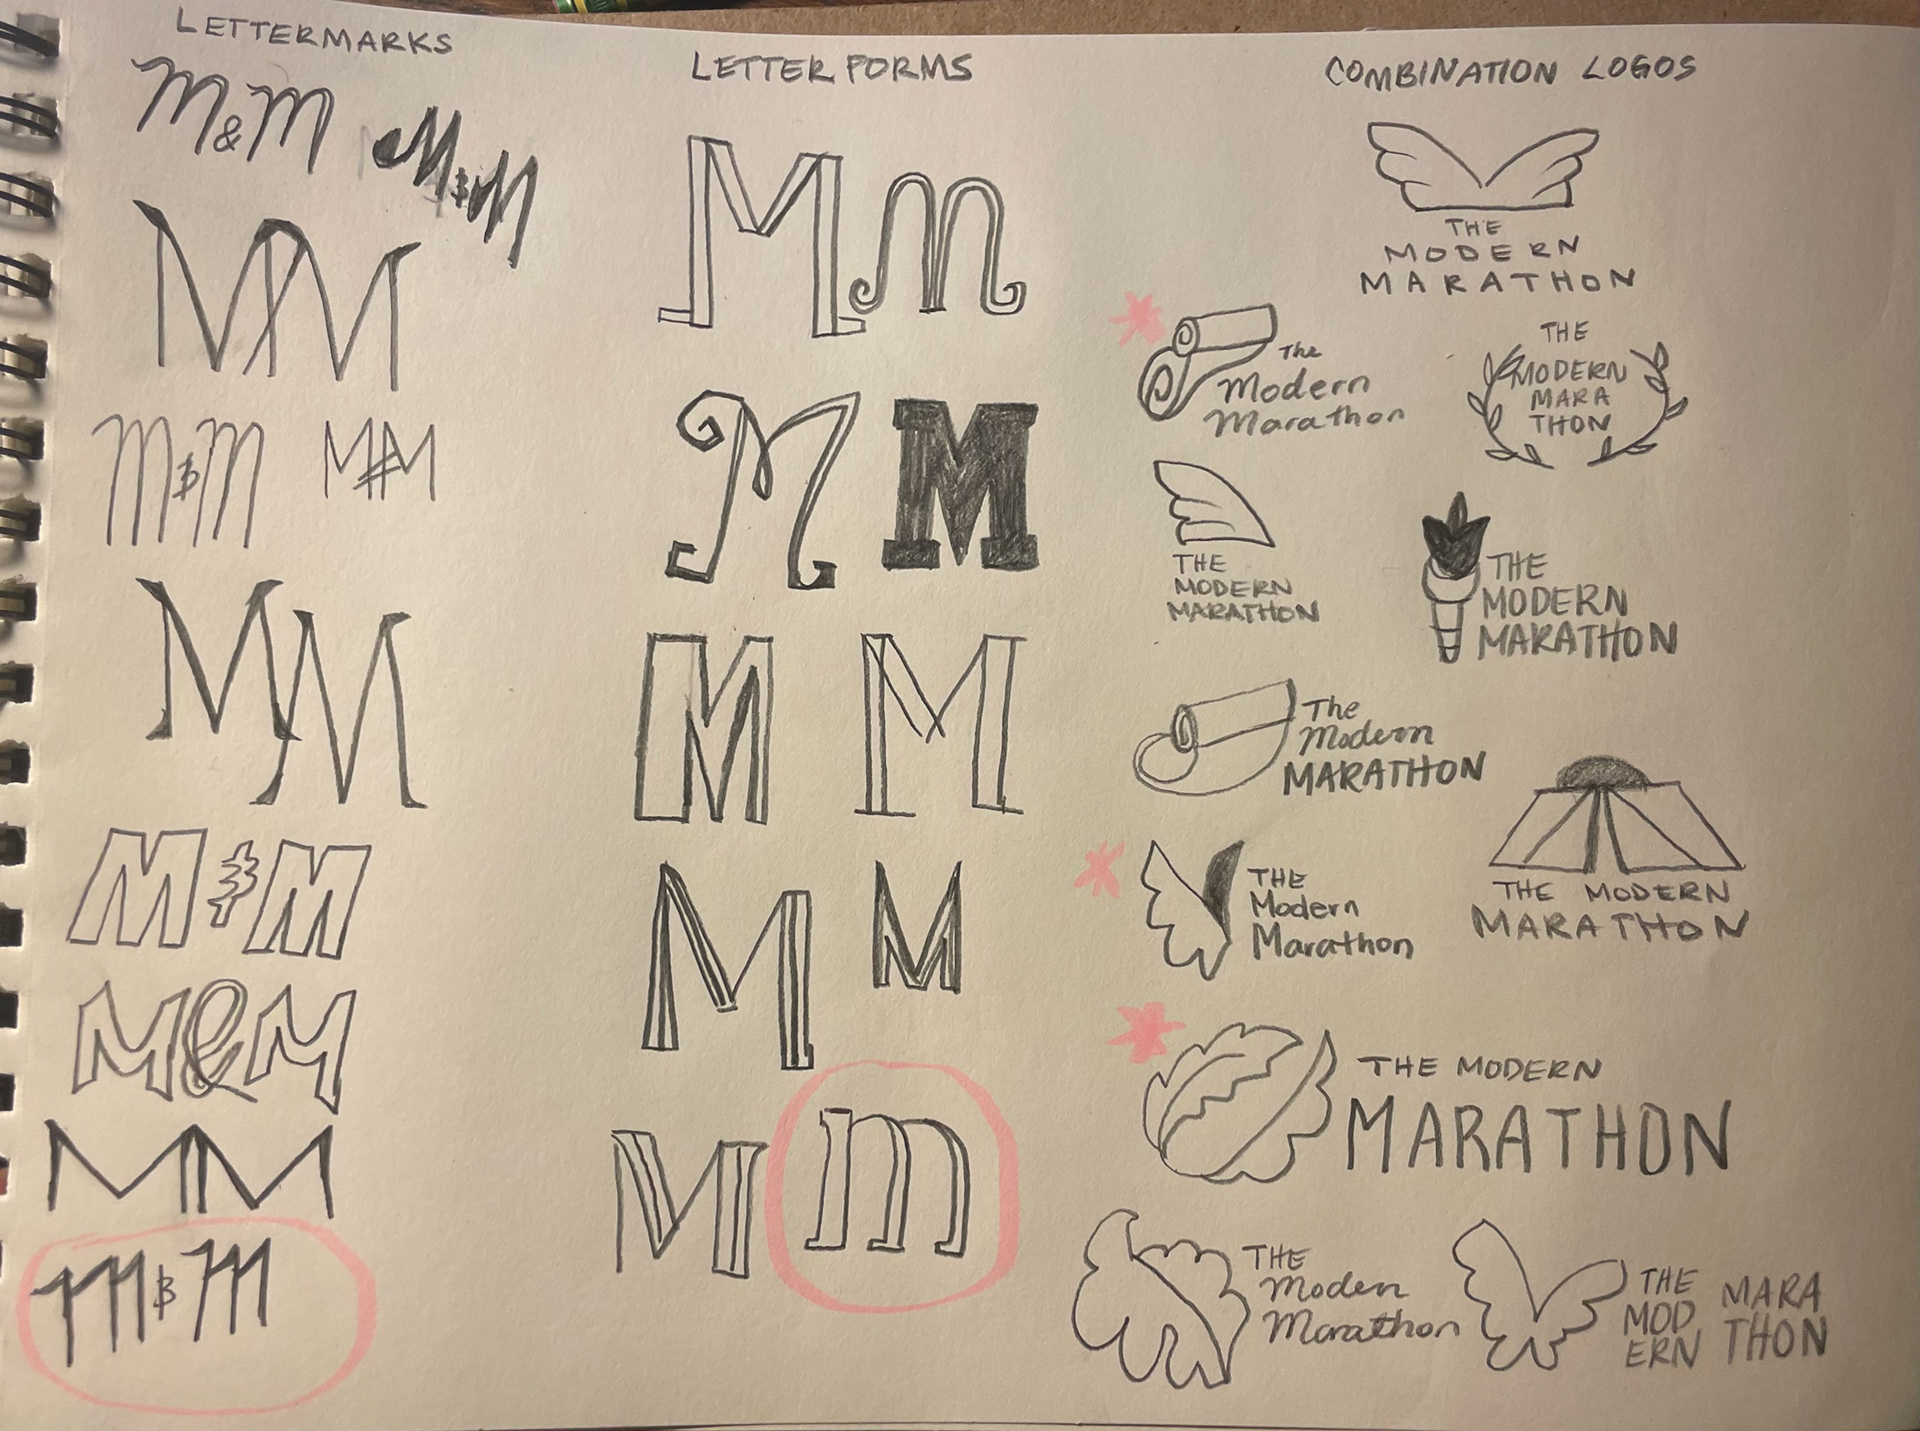 LETTERMARKS
M&M
M&M
MM
M&M
M&M
MM
M&M
M&M
MM
M&M
LETTER FORMS
M m
M M
M M
M M
M m
COMBINATION LOGOS
THE
MODERN
MARATHON
The
Modern
Marathon
THE
MODERN
MARA
THON
THE
MODERN
MARATHON
THE
MODERN
MARATHON
The
Modern
MARATHON
THE MODERN
MARATHON
THE
Modern
Marathon
THE MODERN
MARATHON
THE
Modern
Marathon
THE
MOD
ERN
MARA
THON